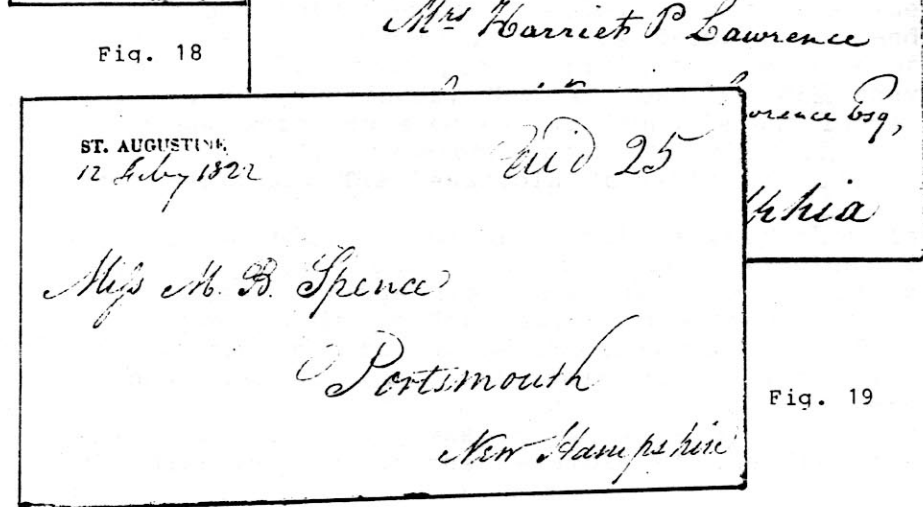 Fig. 18
Mrs Harriet P Lawrence
Esq,
ST. AUGUSTINE
12 Feby 1822
Paid 25
Miss M. B. Spence
Portsmouth
New Hampshire
Fig. 19